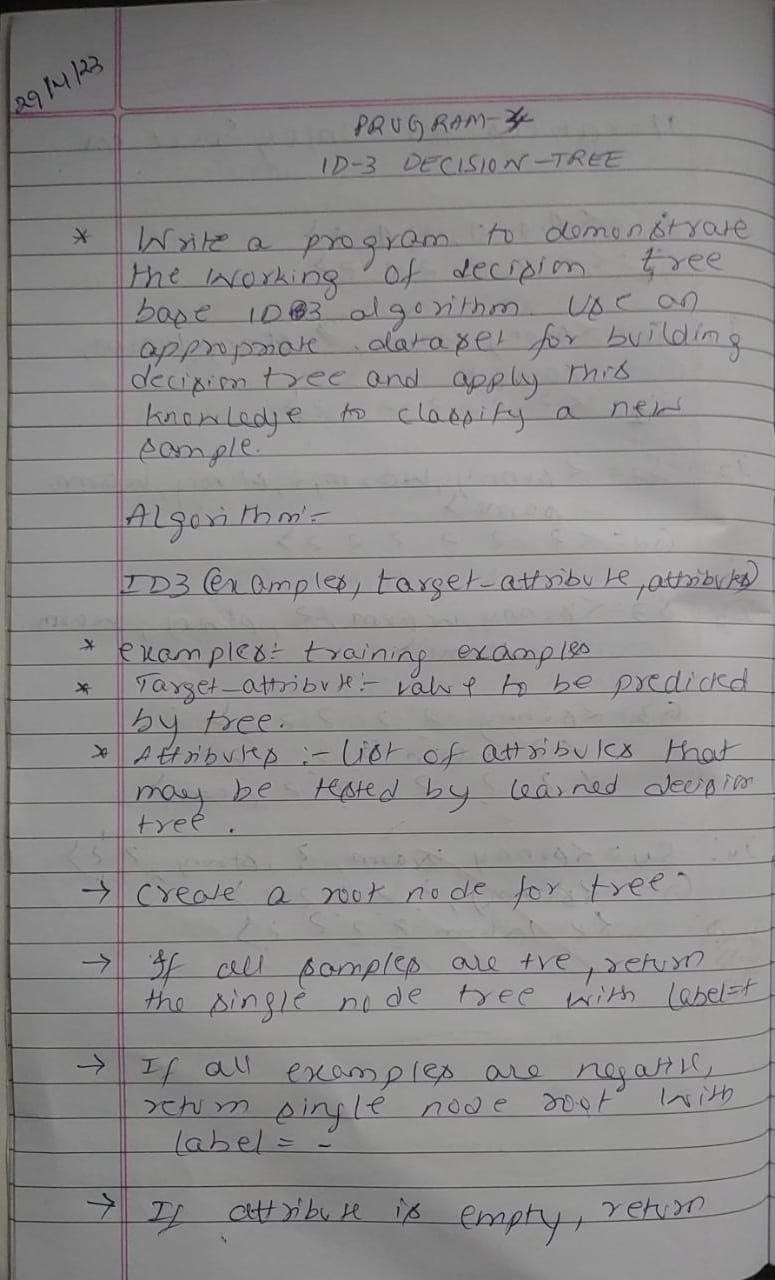 29/4/23
PROGRAM-
ID-3 DECISION-TREE
* Write a program to demonstrate
the working of decision tree
base ID3 algorithm. Use an
appropriate dataset for building
decision tree and apply this
knowledge to classify a new
sample.
Algorithm:-
ID3 (examples, target-attribute, attributes)
* examples:- training examples
* Target-attribute:- value to be predicted
by tree.
* Attributes :- list of attributes that
may be tested by learned decision
tree.
→ Create a root node for tree.
→ If all samples are +ve, return
the single node tree with label=+
→ If all examples are negative,
return single node root with
label = -
→ If attribute is empty, return